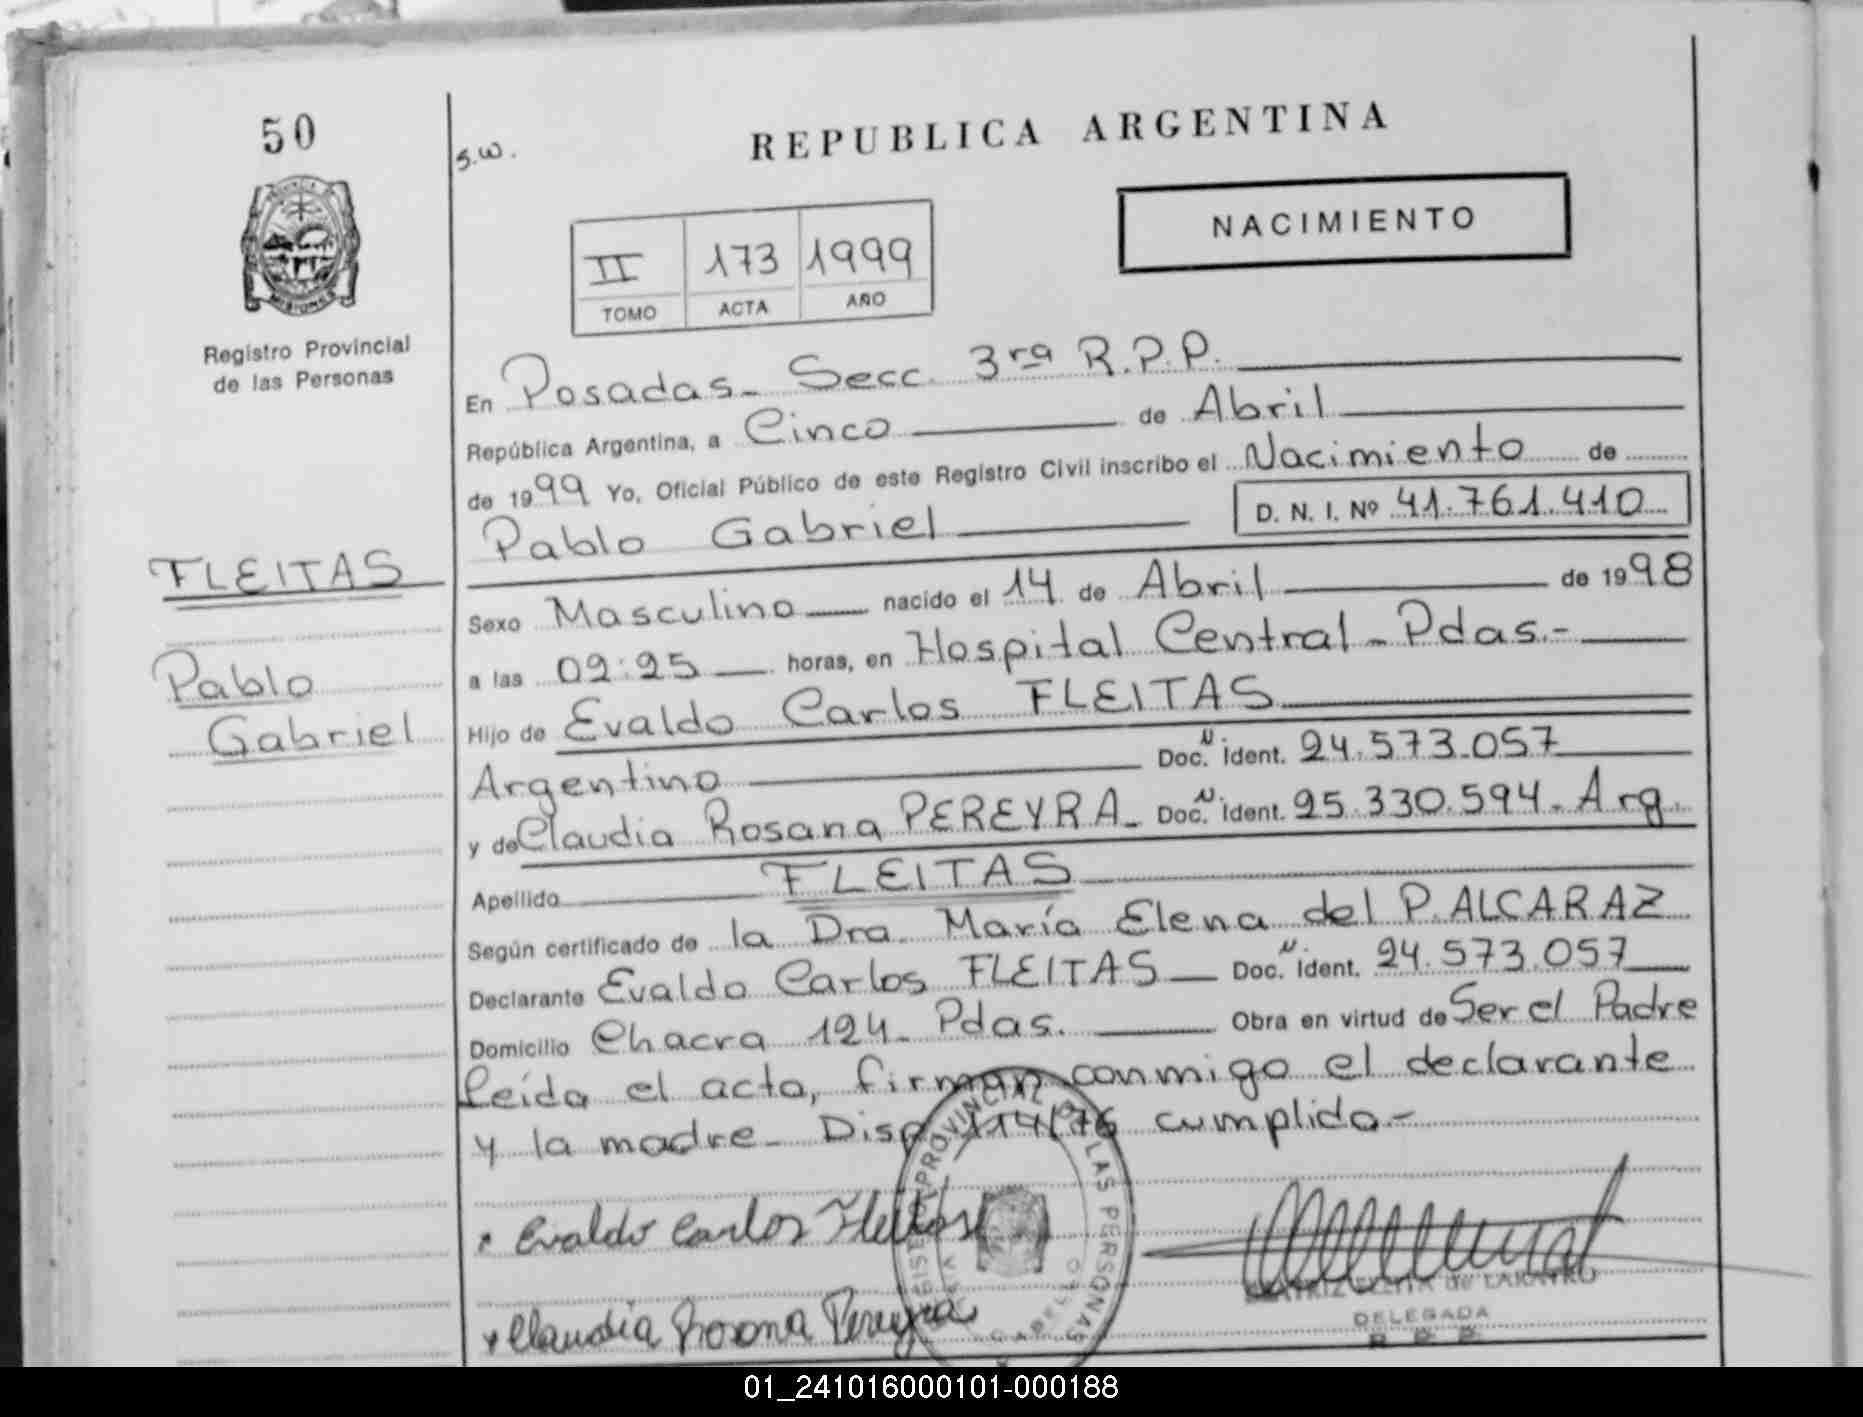 50
s.w.
REPUBLICA ARGENTINA
NACIMIENTO
II 173 1999
TOMO ACTA AÑO
MISIONES
Registro Provincial
de las Personas
En Posadas - Secc. 3ra R.P.P.
República Argentina, a Cinco de Abril
de 1999 Yo, Oficial Público de este Registro Civil inscribo el Nacimiento de
Pablo Gabriel D. N. I. Nº 41.761.410
FLEITAS
Pablo
Gabriel
Sexo Masculino nacido el 14 de Abril de 1998
a las 02:25 horas, en Hospital Central - Pdas.-
Hijo de Evaldo Carlos FLEITAS
Argentino Doc. N. ident. 24.573.057
y de Claudia Rosana PEREYRA - Doc. N. ident. 25.330.594 - Arg.
Apellido FLEITAS
Según certificado de la Dra. María Elena del P. ALCARAZ
Declarante Evaldo Carlos FLEITAS Doc. N. ident. 24.573.057
Domicilio Chacra 124 - Pdas. Obra en virtud de Ser el Padre
leída el acta, firman conmigo el declarante
y la madre - Disp. 114/76 cumplido.-
Evaldo Carlos Fleitas
Claudia Rosana Pereyra
PROVINCIAL DE LAS PERSONAS
DELEGADA
01_241016000101-000188